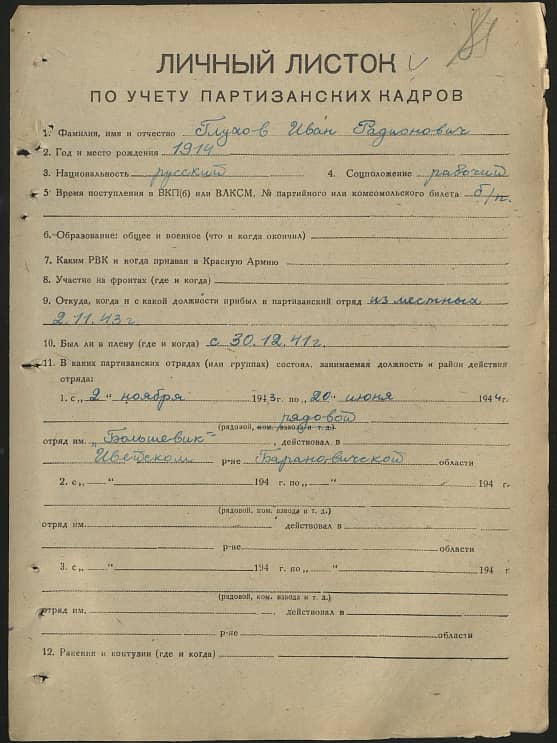 81
ЛИЧНЫЙ ЛИСТОК
ПО УЧЕТУ ПАРТИЗАНСКИХ КАДРОВ
1. Фамилия, имя и отчество Глухов Иван Радионович
2. Год и место рождения 1914
3. Национальность русский 4. Соцположение рабочий
5. Время поступления в ВКП(б) или ВЛКСМ, № партийного или комсомольского билета б/п.
6. Образование: общее и военное (что и когда окончил)
7. Каким РВК и когда призван в Красную Армию
8. Участие на фронтах (где и когда)
9. Откуда, когда и с какой должности прибыл в партизанский отряд из местных
2.11.43 г.
10. Был ли в плену (где и когда) с 30.12.41 г.
11. В каких партизанских отрядах (или группах) состоял, занимаемая должность и район действия
отряда:
1. с „2" ноября 1943 г. по „20" июня 1944 г.
рядовой
(рядовой, ком. взвода и т. д.)
отряд им. „Большевик", действовал в
Ивейском р-не Барановичской области
2. с „ " 194 г. по „ " 194 г.
(рядовой, ком. взвода и т. д.)
отряд им. действовал в
р-не области
3. с „ " 194 г. по „ " 194 г
(рядовой, ком. взвода и т. д.)
отряд им. , действовал в
р-не области
12. Ранения и контузии (где и когда)